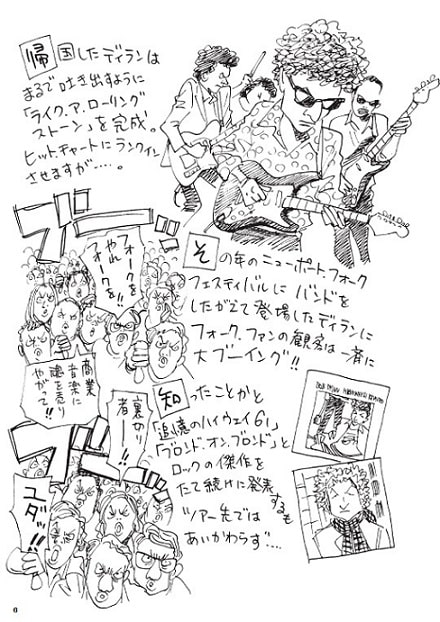 帰国したディランは
まるで吐き出すように
「ライク.ア.ローリング
ストーン」を完成。
ヒットチャートにランクイン
させますが……。
ブー
フォークを
やれ
フォークを!!
その年のニューポートフォーク
フェスティバルに バンドを
したがえて登場したディランに
フォーク.ファンの観客は一斉に
大ブーイング!!
商業
音楽に
魂を売り
やがって!!
裏切り
者ーー!!
知ったことかと
「追憶のハイウェイ61」
「ブロンド.オン.ブロンド」と
ロックの傑作を
たて続けに発表するも
ツアー先では
あいかわらず…
ブー
ユダッ!!
6